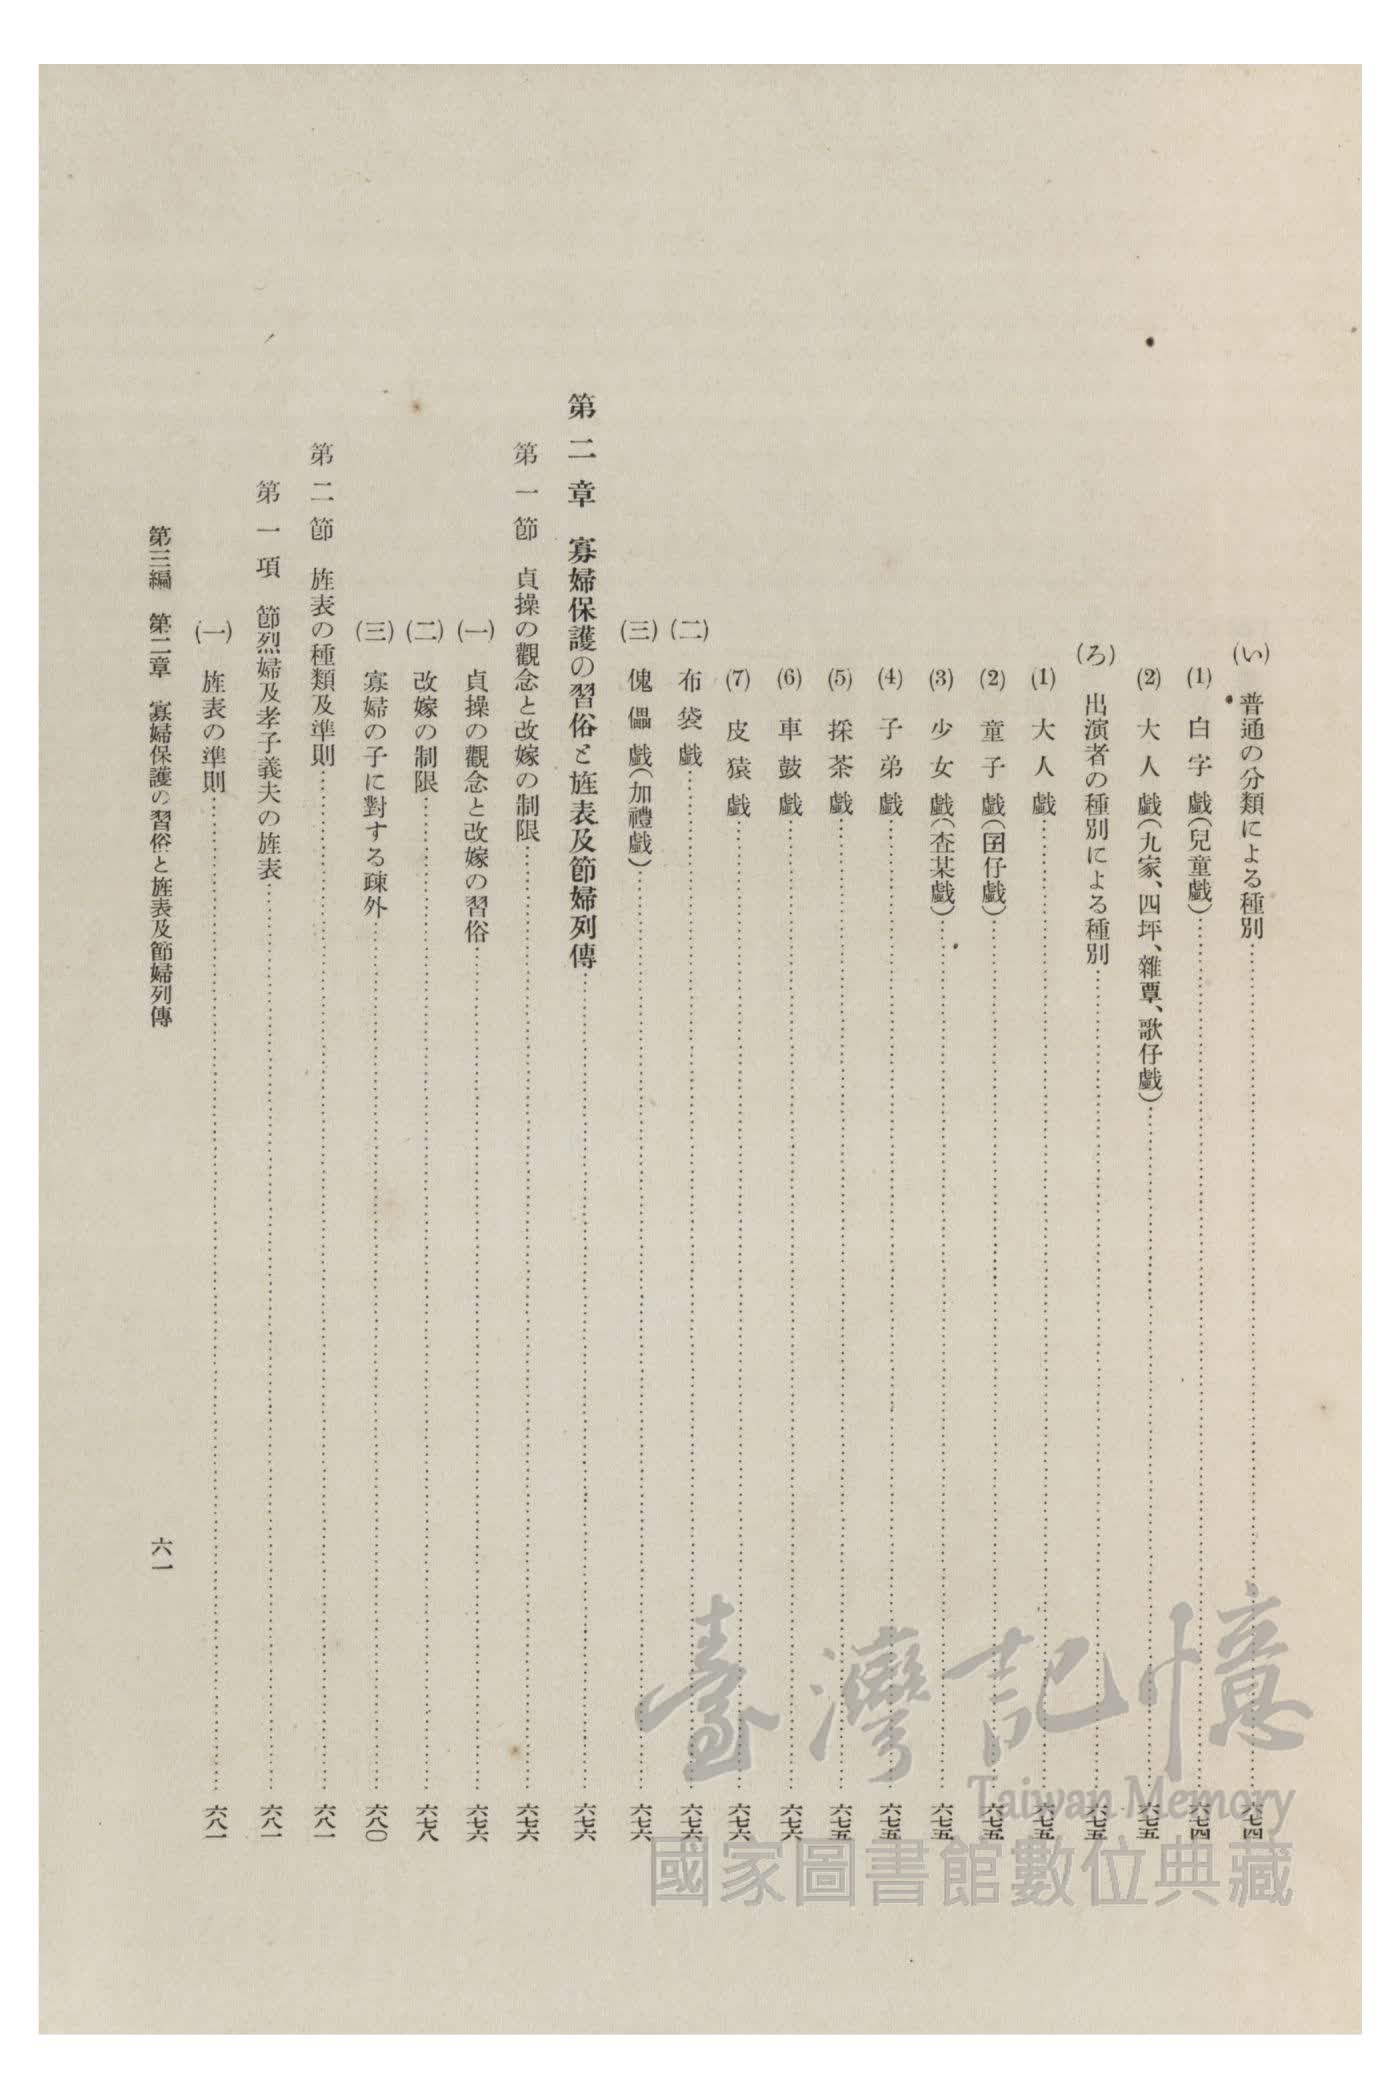 (い) 普通の分類による種別……六七四
(1) 白字戲(兒童戲)……六七四
(2) 大人戲(九家、四坪、雜覃、歌仔戲)……六七五
(ろ) 出演者の種別による種別……六七五
(1) 大人戲……六七五
(2) 童子戲(囝仔戲)……六七五
(3) 少女戲(查某戲)……六七五
(4) 子弟戲……六七五
(5) 採茶戲……六七五
(6) 車鼓戲……六七六
(7) 皮猿戲……六七六
(二) 布袋戲……六七六
(三) 傀儡戲(加禮戲)……六七六
第二章 寡婦保護の習俗と旌表及節婦列傳……六七六
第一節 貞操の觀念と改嫁の制限……六七六
(一) 貞操の觀念と改嫁の習俗……六七六
(二) 改嫁の制限……六七八
(三) 寡婦の子に對する疎外……六八〇
第二節 旌表の種類及準則……六八一
第一項 節烈婦及孝子義夫の旌表……六八一
(一) 旌表の準則……六八一
第三編 第二章 寡婦保護の習俗と旌表及節婦列傳
六一
臺灣記憶
Taiwan Memory
國家圖書館數位典藏